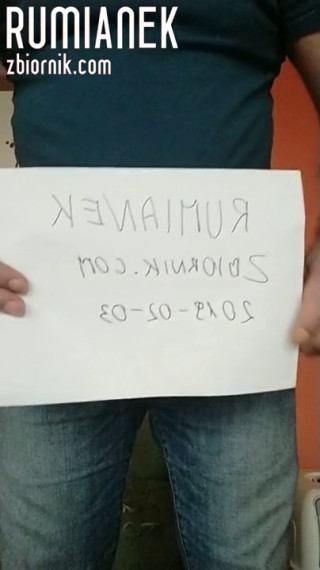 RUMIANEK
zbiornik.com
RUMIANEK
ZBIORNIK.COM
2019-02-03